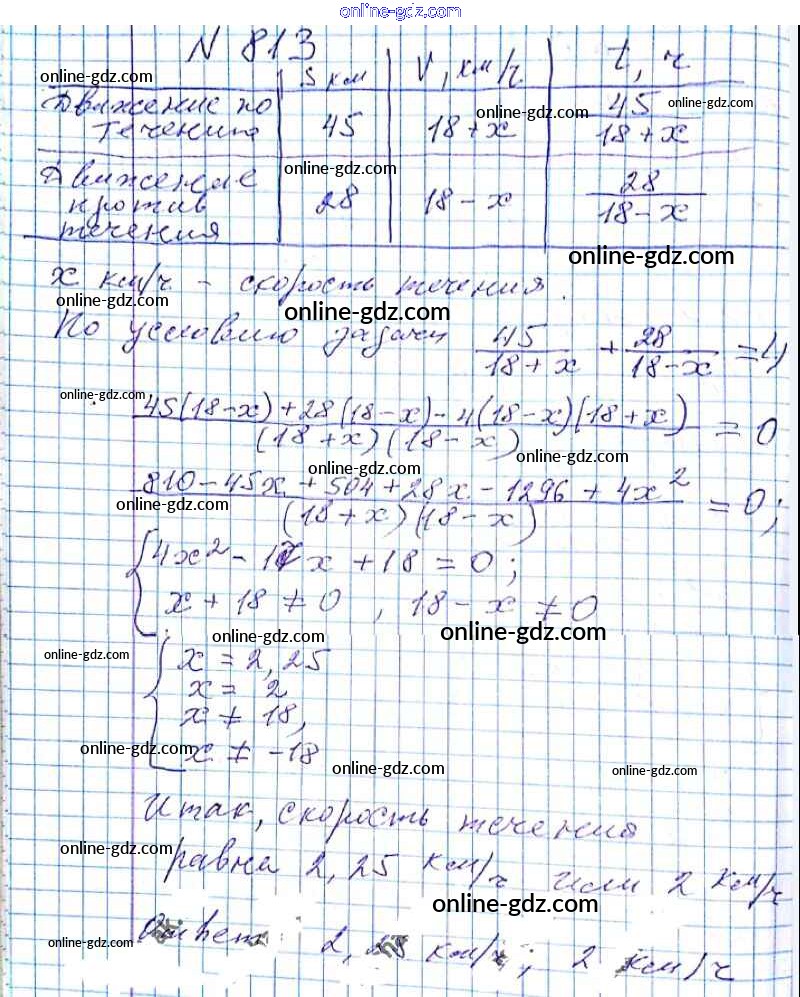 online-gdz.com
N 813
S км V, км/ч t, ч
online-gdz.com
Движение по течению 45 18+x 45/(18+x)
online-gdz.com online-gdz.com
online-gdz.com
Движение против течения 28 18-x 28/(18-x)
online-gdz.com
x км/ч - скорость течения.
online-gdz.com
online-gdz.com
По условию задачи 45/(18+x) + 28/(18-x) = 4
online-gdz.com
(45(18-x)+28(18-x)-4(18-x)(18+x))/((18+x)(18-x)) = 0
online-gdz.com
online-gdz.com
(810-45x+504+28x-1296+4x²)/((18+x)(18-x)) = 0;
online-gdz.com
4x²-17x+18=0;
x+18≠0, 18-x≠0
online-gdz.com
online-gdz.com
online-gdz.com
x=2,25
x=2
x≠18,
x≠-18
online-gdz.com
online-gdz.com
online-gdz.com
Итак, скорость течения
online-gdz.com
равна 2,25 км/ч или 2 км/ч
online-gdz.com
online-gdz.com
Ответ: км/ч; 2 км/ч